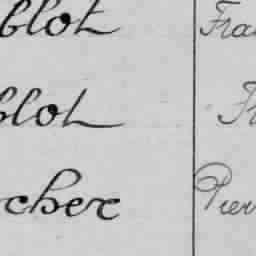 blot Fra
blot
cher Pier